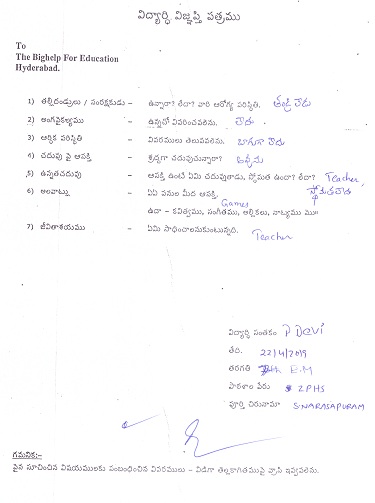 విద్యార్ధి విజ్ఞప్తి పత్రము
To
The Bighelp For Education
Hyderabad.
1) తల్లిదండ్రులు / సంరక్షకుడు - ఉన్నారా? లేదా? వారి ఆరోగ్య పరిస్థితి. తండ్రి లేడు
2) అంగవైకల్యము - ఉన్నచో వివరించవలెను. లేదు
3) ఆర్ధిక పరిస్థితి - వివరములు తెలుపవలెను. బాగుగా లేదు
4) చదువు పై ఆసక్తి - శ్రద్ధగా చదువుచున్నారా? అవును
5) ఉన్నతచదువు - ఆసక్తి ఉంటే ఏమి చదువుతాడు, స్తోమత ఉందా? లేదా? Teacher,
స్తోమతలేదు
6) అలవాట్లు - ఏఏ పనుల మీద ఆసక్తి. Games
ఉదా - కవిత్వము, సంగీతము, అల్లికలు, నాట్యము మొ॥
7) జీవితాశయము - ఏమి సాధించాలనుకుంటున్నది. Teacher
విద్యార్ధి సంతకం P Devi
తేది. 22/4/2019
తరగతి E.M
పాఠశాల పేరు ZPHS
పూర్తి చిరునామా S.NARASAPURAM
గమనిక:-
పైన సూచించిన విషయములకు సంబంధించిన వివరములు - విడిగా తెల్లకాగితముపై వ్రాసి ఇవ్వవలెను.